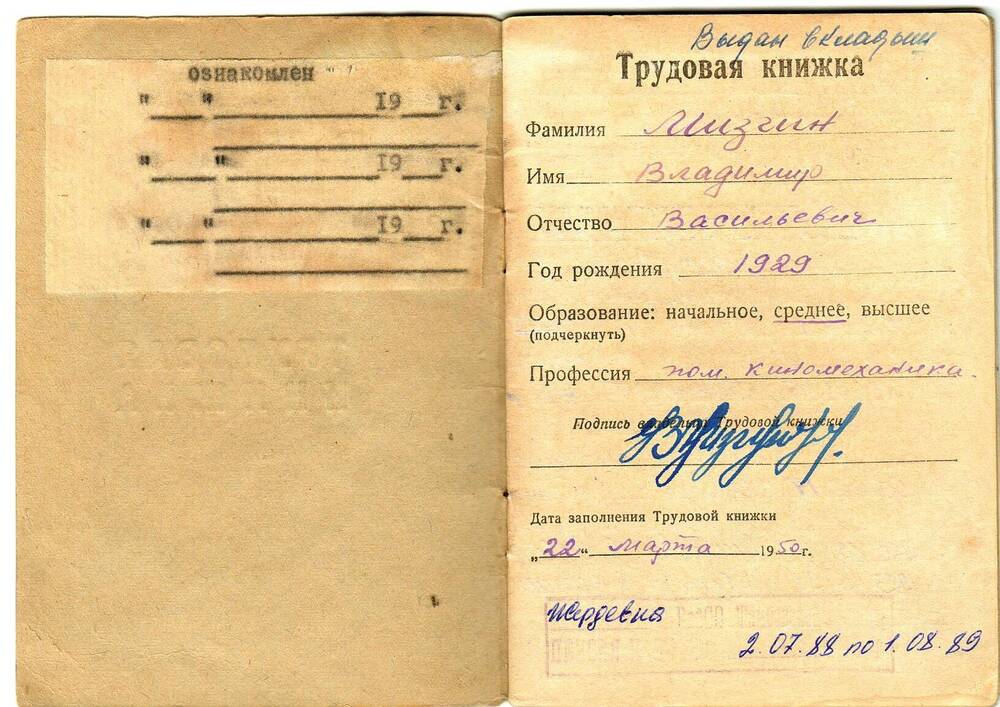 ознакомлен
" " 19 г.
" " 19 г.
" " 19 г.
Выдан вкладыш
Трудовая книжка
Фамилия Мизгин
Имя Владимир
Отчество Васильевич
Год рождения 1929
Образование: начальное, среднее, высшее
(подчеркнуть)
Профессия пом. киномеханика
Подпись владельца Трудовой книжки
Дата заполнения Трудовой книжки
„22“ марта 1950г.
Жердевка
2.07.88 по 1.08.89